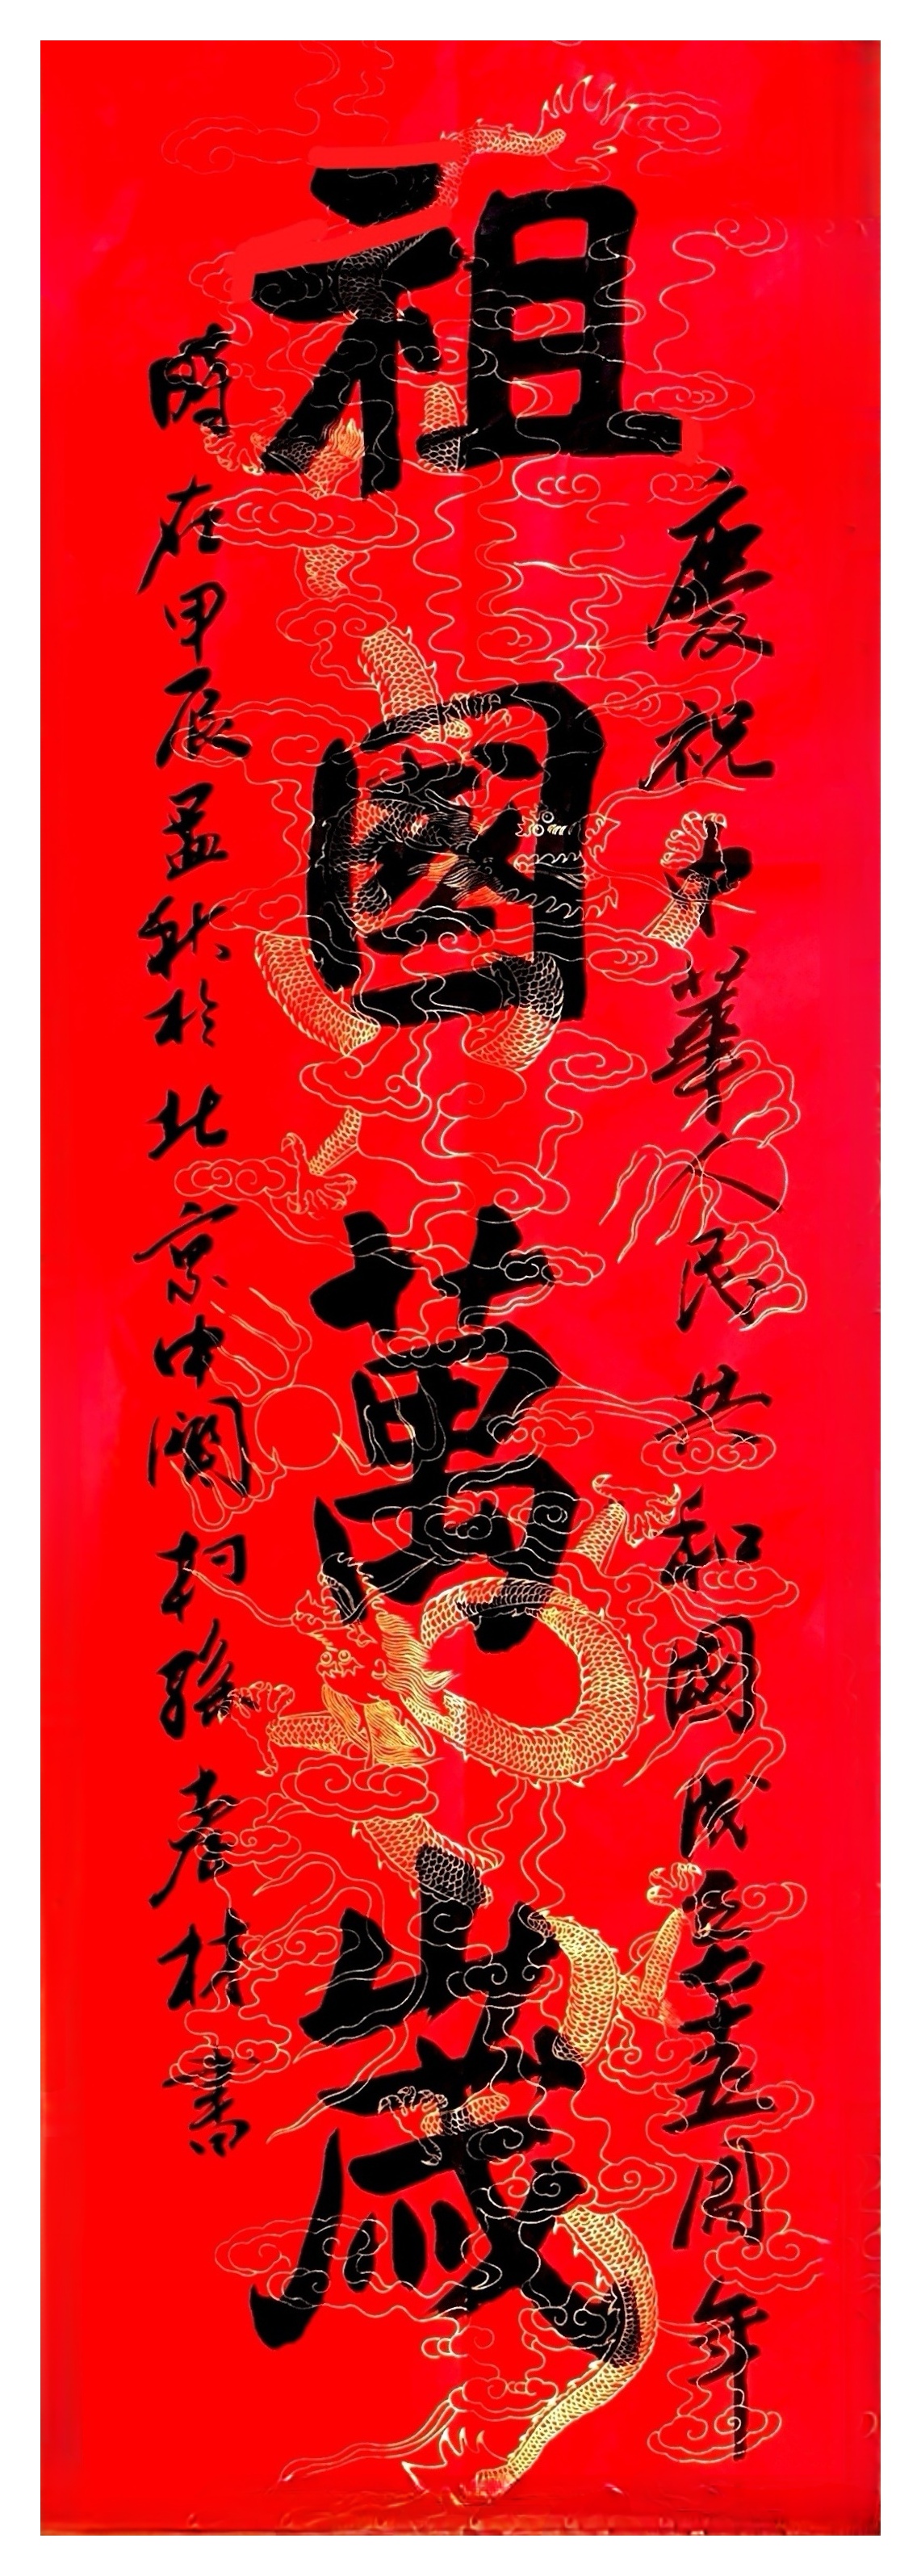 慶祝中華人民共和國成立七十五周年
祖國萬歲
時在甲辰孟秋於北京中關村林書